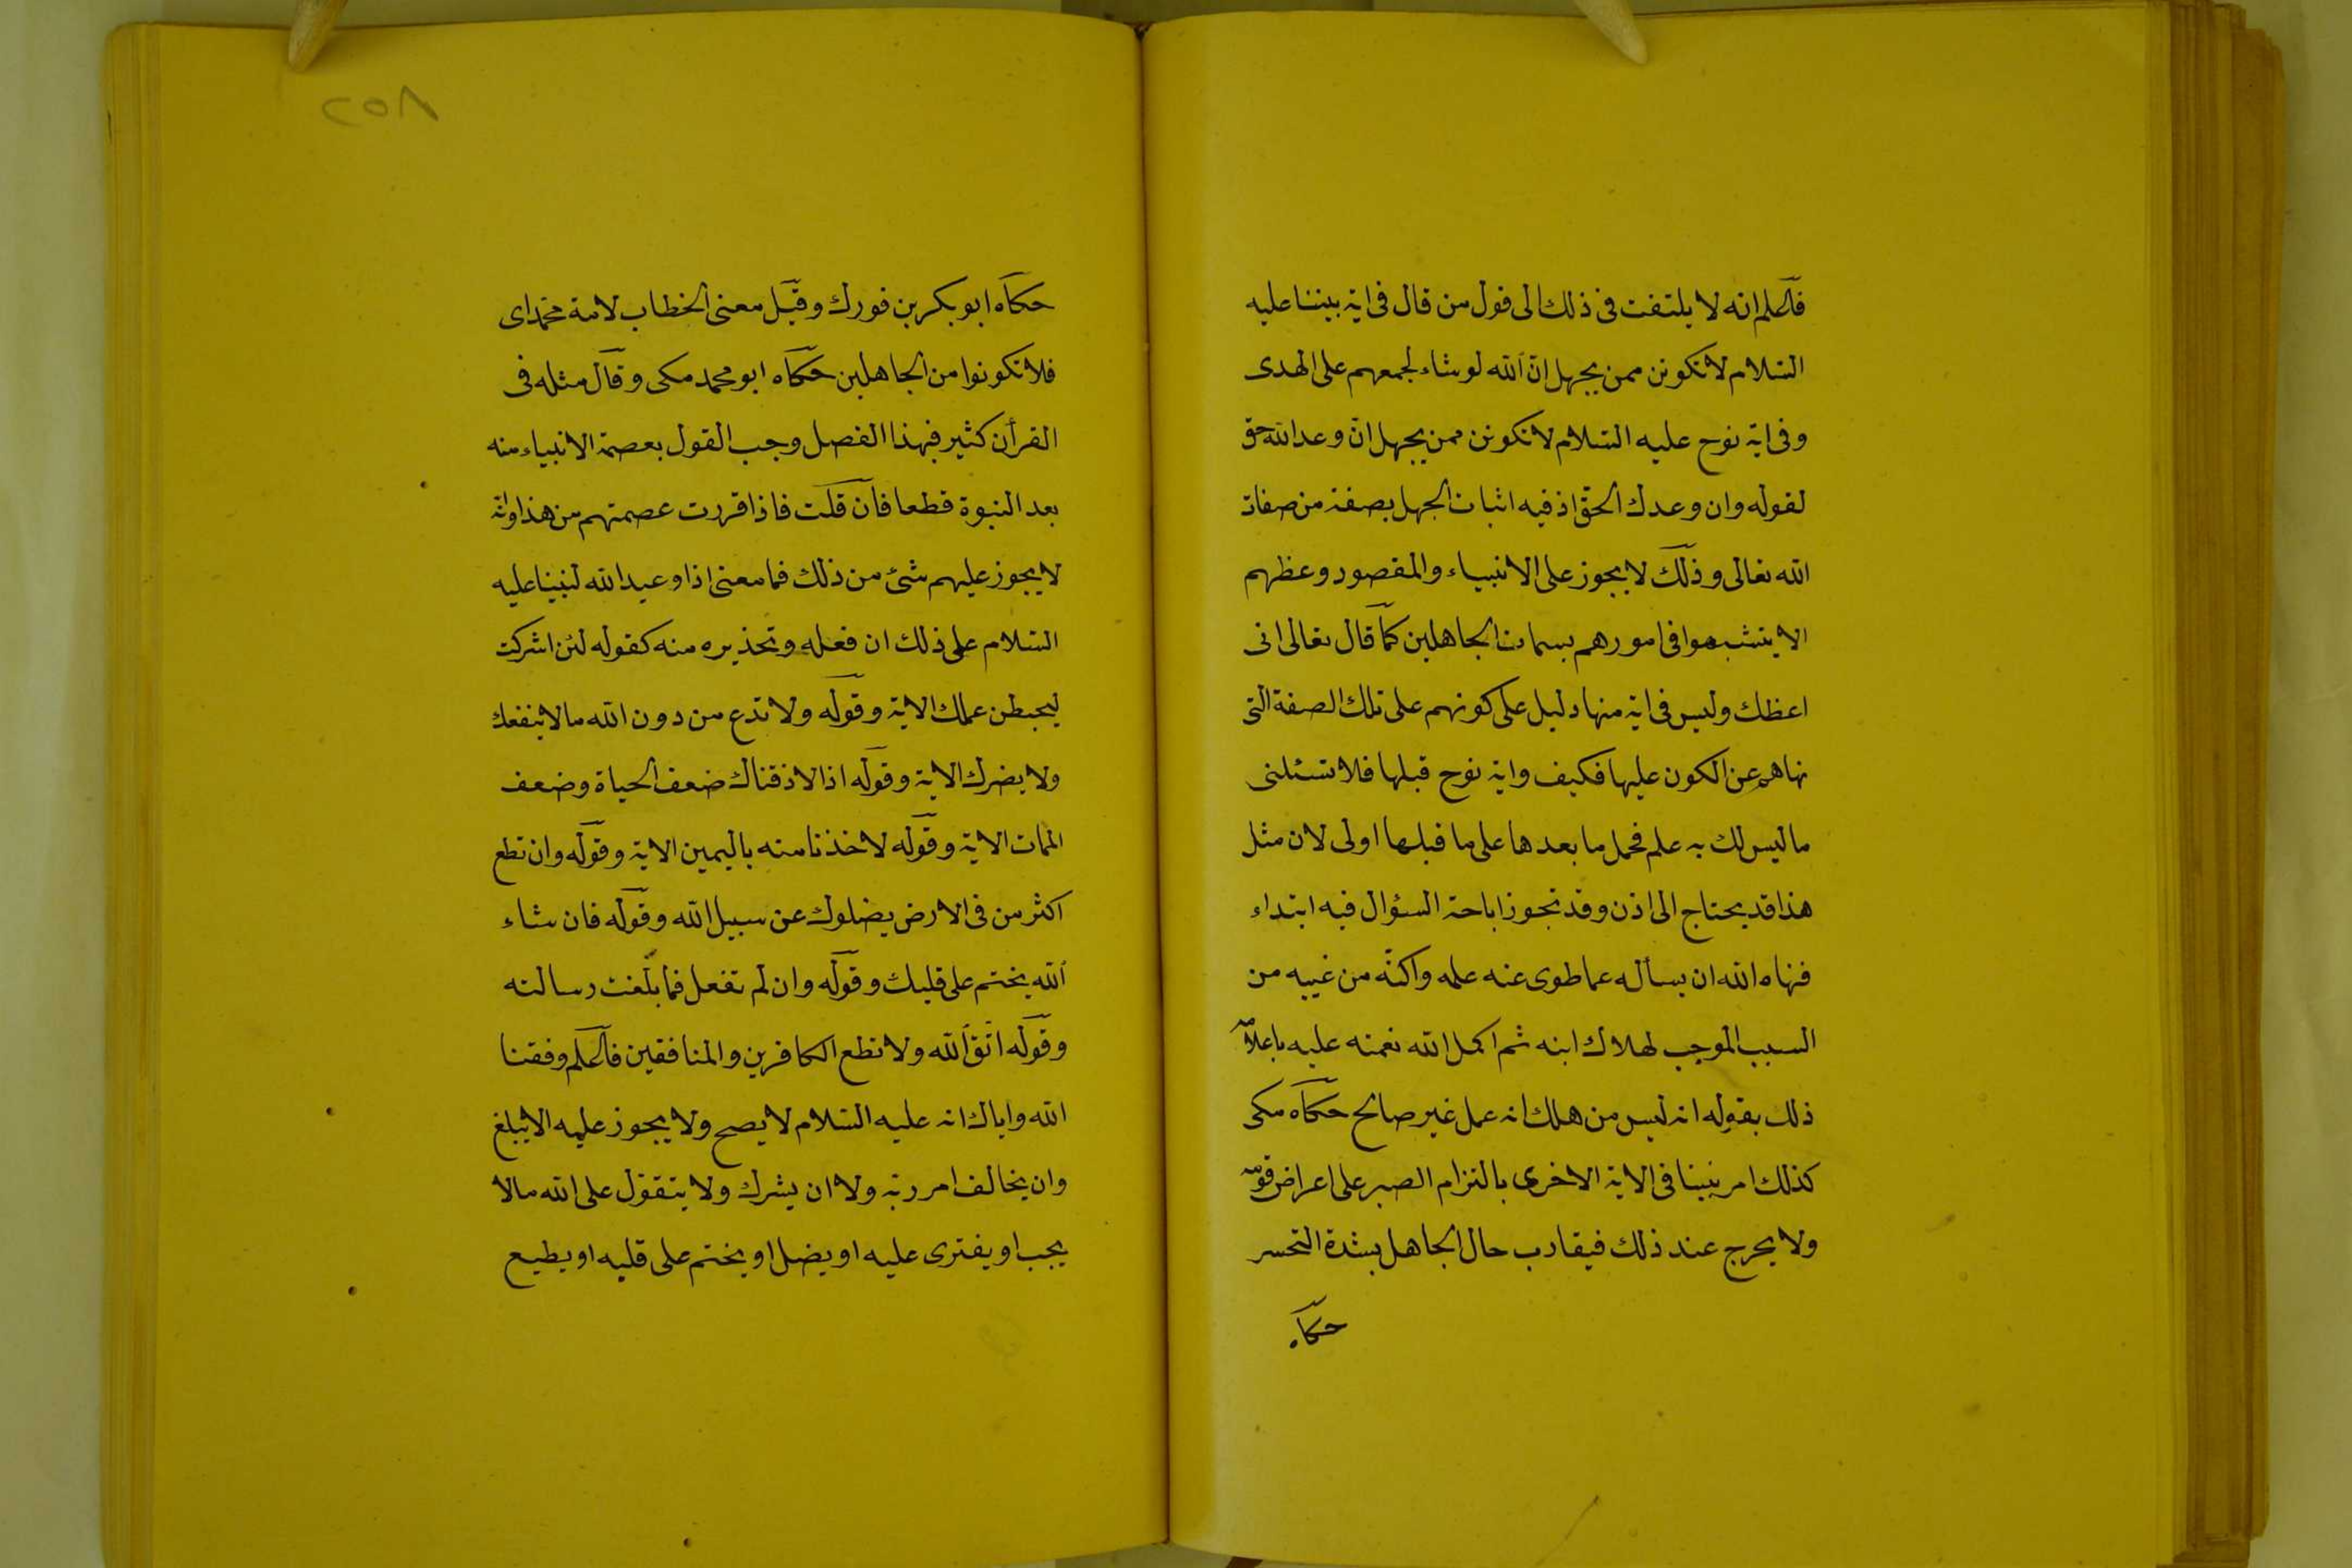 فاعلم انه لا يلتفت فى ذلك الى قول من قال فى اية نبينا عليه
السلام لا تكونن ممن يجهل ان الله لو شاء لجمعهم على الهدى
وفى اية نوح عليه السلام لا تكونن ممن يجهل ان وعد الله حق
لقوله وان وعدك الحق اذ فيه اثبات الجهل بصفة من صفات
الله تعالى وذلك لا يجوز على الانبياء والمقصود وعظهم
الا يتشبهوا فى امورهم بسمات الجاهلين كما قال تعالى انى
اعظك وليس فى اية منها دليل على كونهم على تلك الصفة التى
نهاهم عن الكون عليها فكيف واية نوح قبلها فلا تسئلنى
ما ليس لك به علم فحمل ما بعدها على ما قبلها اولى لان مثل
هذا قد يحتاج الى اذن وقد تجوز اباحة السؤال فيه ابتداء
فنهاه الله ان يسأله عما طوى عنه علمه واكنّه من غيبه من
السبب الموجب لهلاك ابنه ثم اكمل الله نعمته عليه باعلامه
ذلك بقوله انه ليس من هلك انه عمل غير صالح حكاه مكى
كذلك امر نبينا فى الاية الاخرى بالتزام الصبر على اعراض قومه
ولا يحرج عند ذلك فيقارب حال الجاهل بشدة التحسر
حكاه
٢٥٨
حكاه ابو بكر بن فورك وقيل معنى الخطاب لامة محمد اى
فلا تكونوا من الجاهلين حكاه ابو محمد مكى وقال مثله فى
القرأن كثير فبهذا الفصل وجب القول بعصمة الانبياء منه
بعد النبوة قطعا فان قلت فاذا قررت عصمتهم من هذا وانه
لا يجوز عليهم شئ من ذلك فما معنى اذا وعيد الله لنبينا عليه
السلام على ذلك ان فعله وتحذيره منه كقوله لئن اشركت
ليحبطن عملك الاية وقوله ولا تدع من دون الله ما لا ينفعك
ولا يضرك الاية وقوله اذا لاذقناك ضعف الحياة وضعف
الممات الاية وقوله لاخذنا منه باليمين الاية وقوله وان تطع
اكثر من فى الارض يضلوك عن سبيل الله وقوله فان شاء
الله يختم على قلبك وقوله وان لم تفعل فما بلغت رسالته
وقوله اتق الله ولا تطع الكافرين والمنافقين فاعلم وفقنا
الله واياك انه عليه السلام لا يصح ولا يجوز عليه الا يبلغ
وان يخالف امر ربه ولا ان يشرك ولا يتقول على الله ما لا
يجب او يفترى عليه او يضل او يختم على قلبه او يطيع